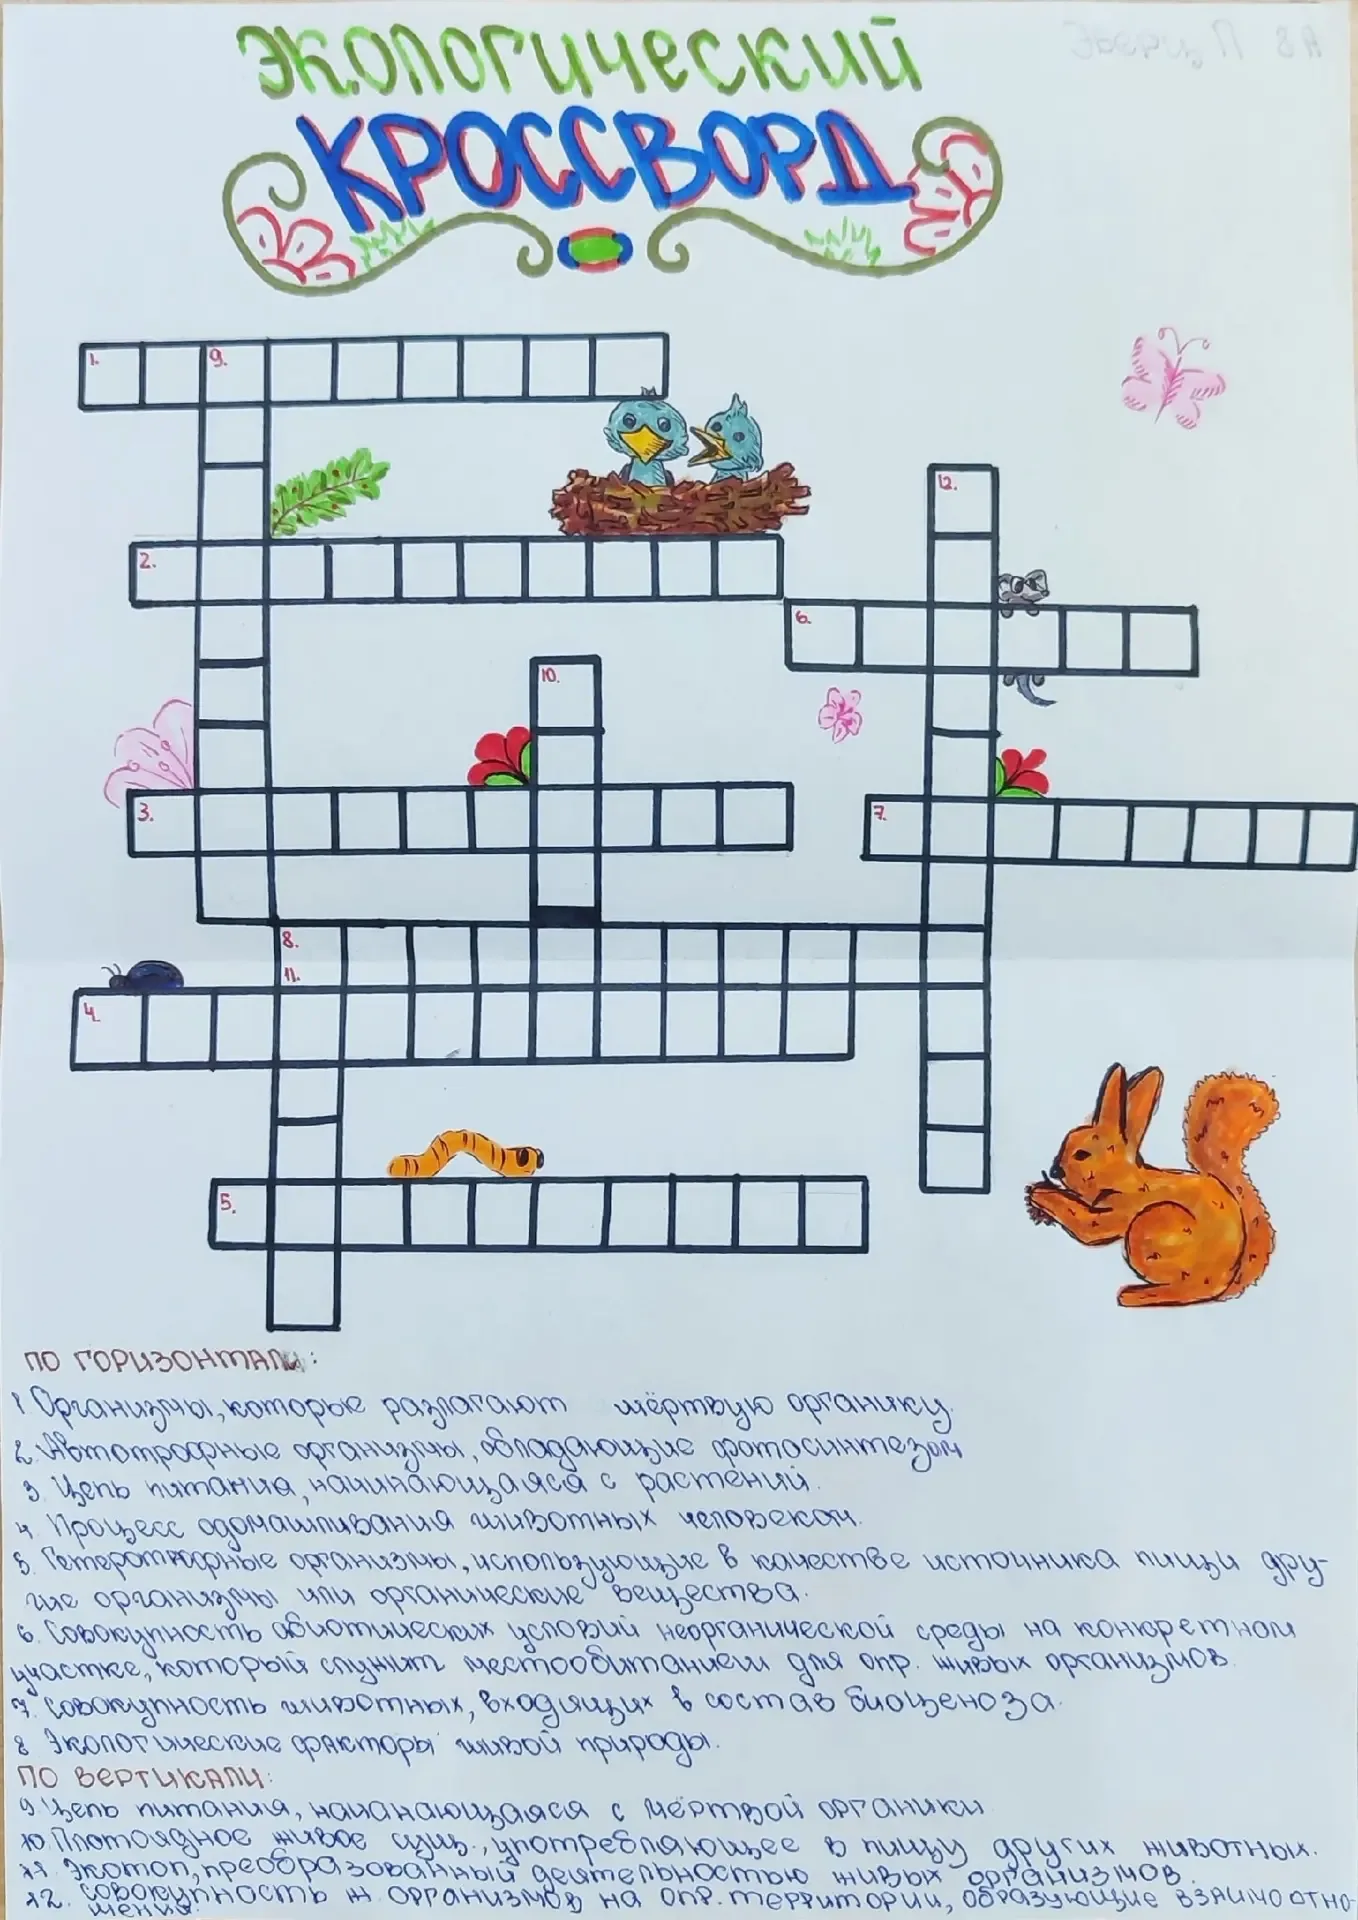 ЭКОЛОГИЧЕСКИЙ
КРОССВОРД
1. 9.
12.
2.
6.
10.
3. 7.
8.
11.
4.
5.
ПО ГОРИЗОНТАЛИ:
1 Организмы, которые разлагают мёртвую органику.
2. Автотрофные организмы, обладающие фотосинтезом
3. Цепь питания, начинающаяся с растений.
4. Процесс одомашливания животных человеком.
5. Гетеротрофные организмы, использующие в качестве источника пищи дру-
гие организмы или органические вещества.
6. Совокупность абиотических условий неорганической среды на конкретном
участке, который служит местообитанием для опр. живых организмов.
7. Совокупность животных, входящих в состав биоценоза.
8 Экологические факторы живой природы.
ПО ВЕРТИКАЛИ:
9 Цепь питания, начанающаяся с мёртвой органики
10. Плотоядное живое сущ., употребляющее в пищу других животных.
11. Экотоп, преобразованный деятельностью живых организмов.
12. Совокупность ж. организмов на опр. территории, образующие взаимоотно-
шения.